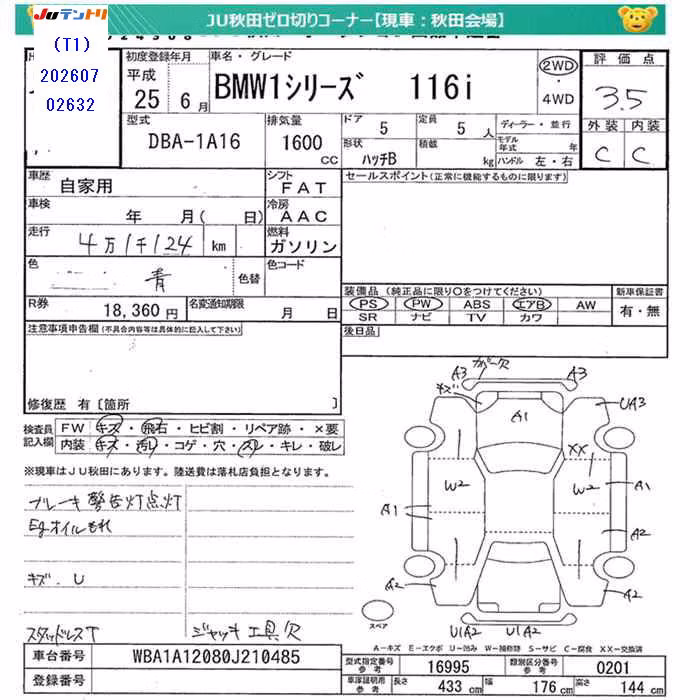 JUテントリ
JU秋田ゼロ切りコーナー【現車：秋田会場】
(T1)
202607
02632
初度登録年月
平成
25 6月
車名・グレード
BMW1シリーズ 116i
2WD
・
4WD
評価点
3.5
外装 内装
C C
型式
DBA-1A16
排気量
1600
CC
ドア 5
定員 5人
ディーラー・並行
モデル年式 年
形状 ハッチB
積載 kg
ハンドル 左・右
車歴
自家用
シフト
FAT
セールスポイント(正常に機能するものに限ります)
車検
年 月( 日)
冷房
AAC
走行
4万1千124 km
燃料
ガソリン
色
青
色替
色コード
R券
18,360円
名変通知期限
月 日
装備品 (純正品に限り○をつけてください)
PS PW ABS エアB AW
SR ナビ TV カワ
新車保証書
有・無
後日品
注意事項申告欄(不具合内容等は具体的に記入して下さい)
修復歴 有[箇所 ]
検査員記入欄
FW キズ・飛石・ヒビ割・リペア跡・×要
内装 キズ・汚れ・コゲ・穴・スレ・キレ・破レ
※現車はJU秋田にあります。陸送費は落札店負担となります。
ブレーキ警告灯点灯
Egオイルもれ
キズ.U
スタッドレスT
ジャッキ工具欠
A3 カバー欠 A3
キズ
A1
UA3
XX
W2
W2
A1
A1
A2
A2
A2
U1A2 U1A2
スペア
A-キズ E-エクボ U-凹み W-補修跡 S-サビ C-腐食 XX-交換済
車台番号
WBA1A12080J210485
登録番号
型式指定番号 参考
16995
類別区分番号 参考
0201
車庫証明用 参考
長さ 433 cm
幅 176 cm
高さ 144 cm